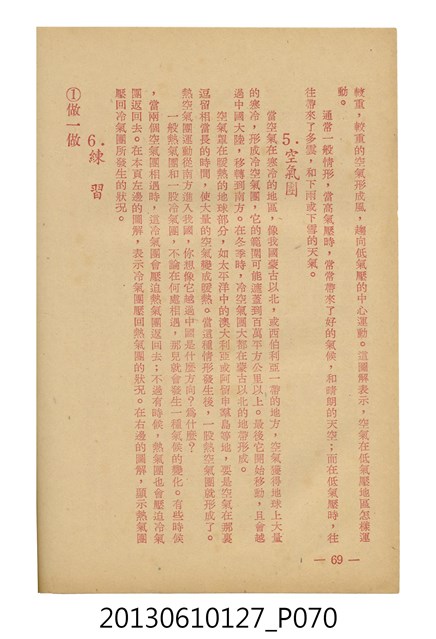 較重，較重的空氣形成風，趨向低氣壓的中心運動。這圖解表示，空氣在低氣壓地區怎樣運
動。
通常一般情形，當高氣壓時，常常帶來了好的氣候，和晴朗的天空；而在低氣壓時，往
往帶來了多雲，和下雨或下雪的天氣。
5．空氣團
當空氣在寒冷的地區，像我國蒙古以北，或西伯利亞一帶的地方，空氣獲得地球上大量
的寒冷，形成冷空氣團，它的範圍可能遮蓋到百萬平方公里以上。最後它開始移動，且會越
過中國大陸，移轉到南方。在冬季時，冷空氣團大都在蒙古以北的地帶形成。
空氣罩在暖熱的地球部分，如太平洋中的澳大利亞或阿留申羣島等地，要是空氣在那裏
逗留相當長的時間，使大量的空氣變成暖熱。當這種情形發生後，一股熱空氣團就形成了。
熱空氣團運動從南方進入我國，你想像它越過中國是什麼方向？為什麼？
一般熱氣團和一股冷氣團，不論在何處相遇，那兒就會發生一種氣候的變化。有些時候
，當兩個空氣團相遇時，這冷氣團會壓迫熱氣團返回去；不過有時候，熱氣團也會壓迫冷氣
團返回去。在本頁左邊的圖解，表示冷氣團壓回熱氣團的狀況。在右邊的圖解，顯示熱氣團
壓回冷氣團所發生的狀況。
6．練習
①做一做
— 69 —
20130610127_P070